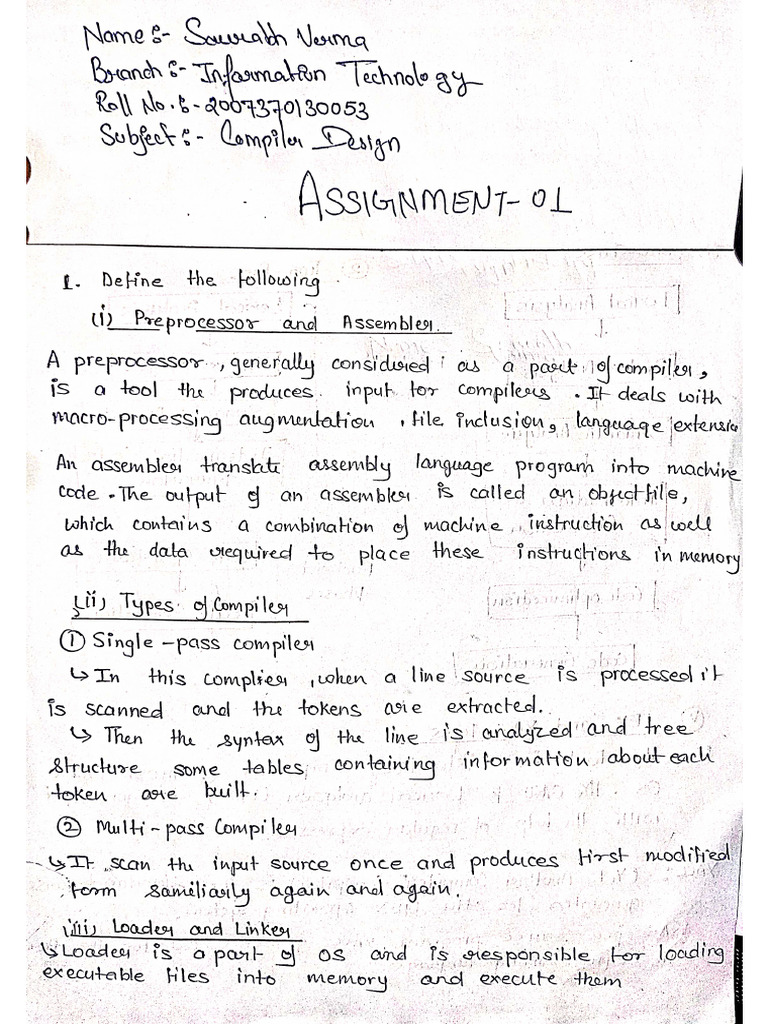 Name:- Saurabh Verma
Branch:- Information Technology
Roll No.:- 2007370130053
Subject:- Compiler Design
ASSIGNMENT-01
1. Define the following.
(i) Preprocessor and Assembler.
A preprocessor, generally considired as a part of compiler,
is a tool the produces input for compilers. It deals with
macro-processing augmentation, file inclusion, language extensio
An assembler translate assembly language program into machine
code. The output of an assembler is called an object file,
which contains a combination of machine instruction as well
as the data required to place these instructions in memory
(ii) Types of Compiler
① Single-pass compiler
↳ In this complier, when a line source is processed it
is scanned and the tokens are extracted.
↳ Then the syntax of the line is analyzed and tree
structure some tables containing information about each
token are built.
② Multi-pass Compiler
↳ It scan the input source once and produces first modified
form samiliarily again and again.
(iii) Loader and Linker
↳ Loader is a part of OS and is responsible for loading
executable files into memory and execute them